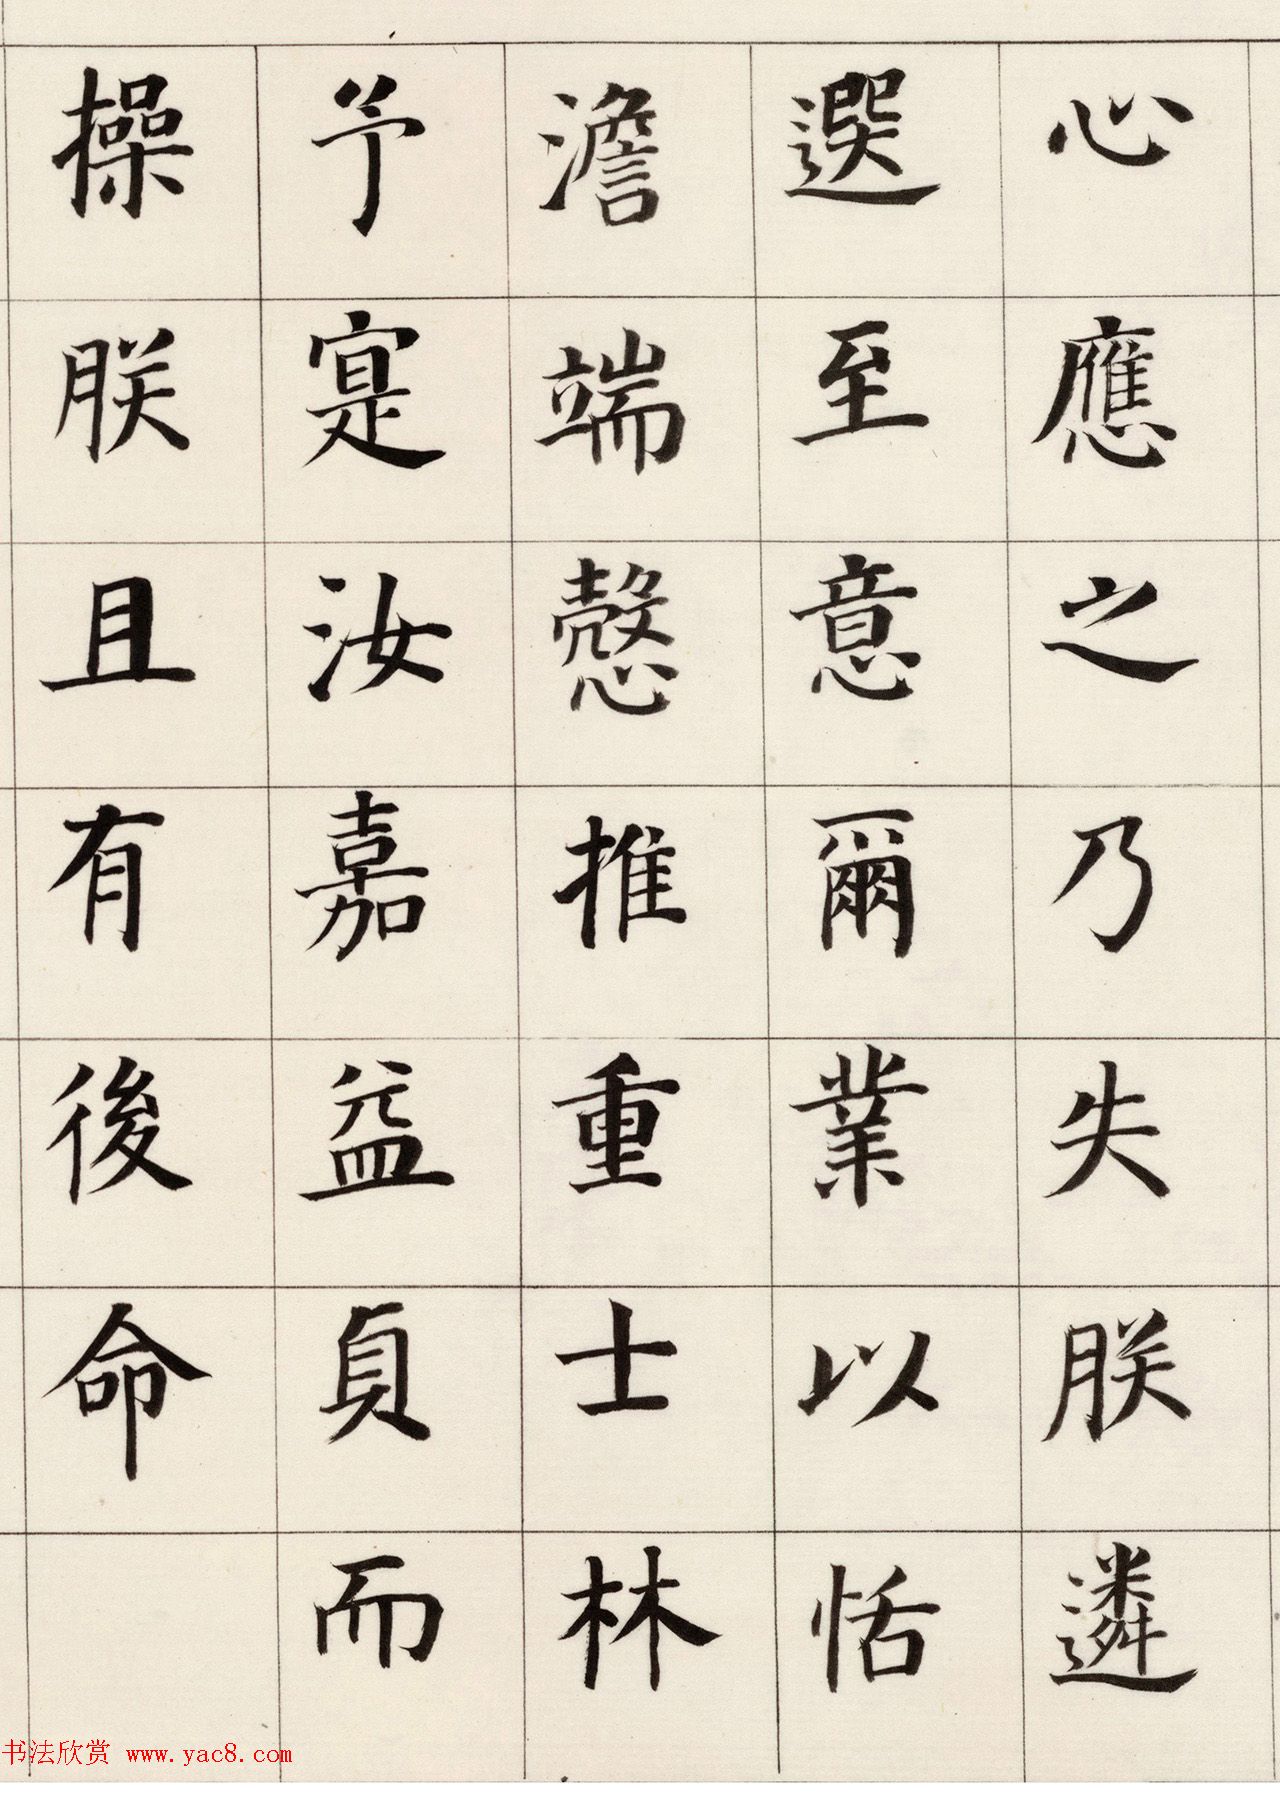 心應之乃失朕遴
選至意爾業以恬
澹端慤推重士林
予寔汝嘉益貞而
操朕且有後命
书法欣赏 www.yac8.com